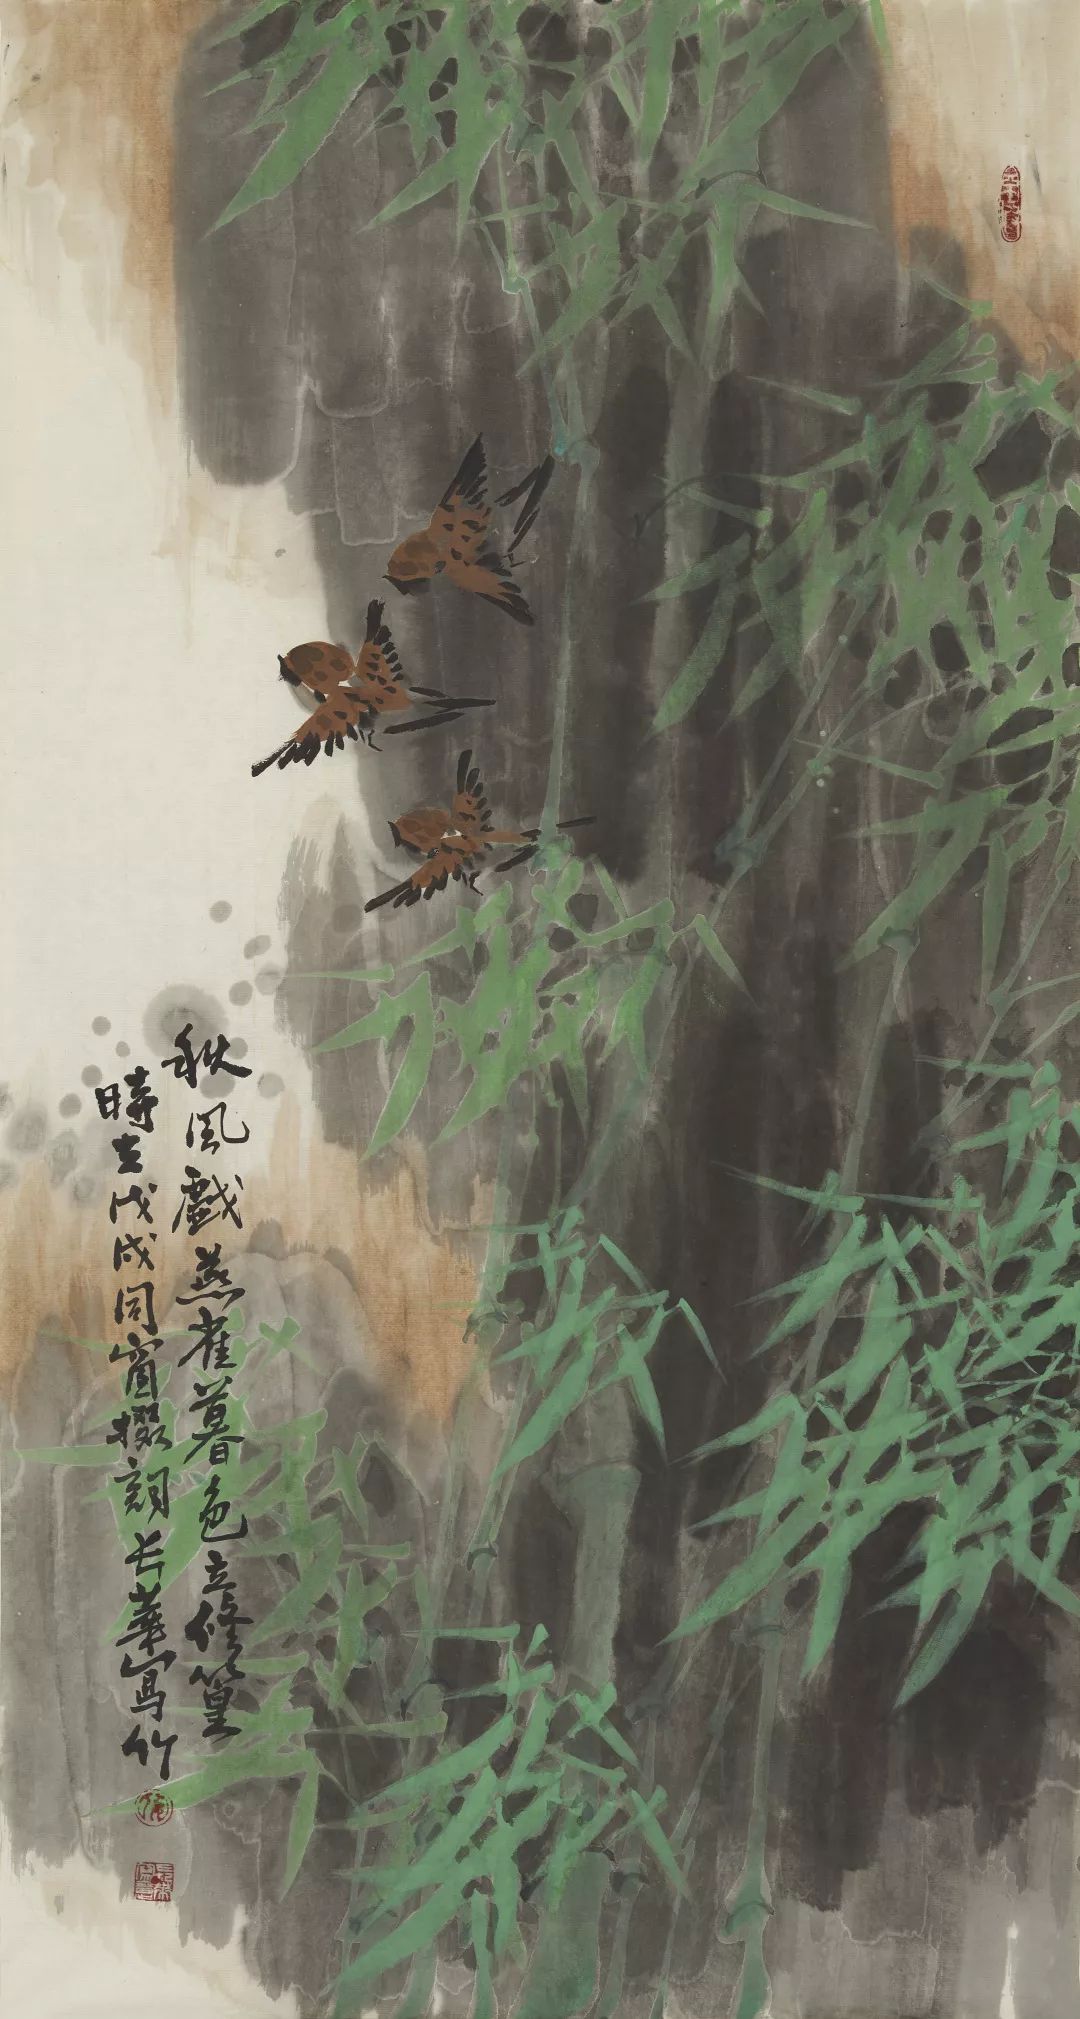 秋風戲燕雀暮色立修篁
時在戊戌同窗撥詞長華寫竹